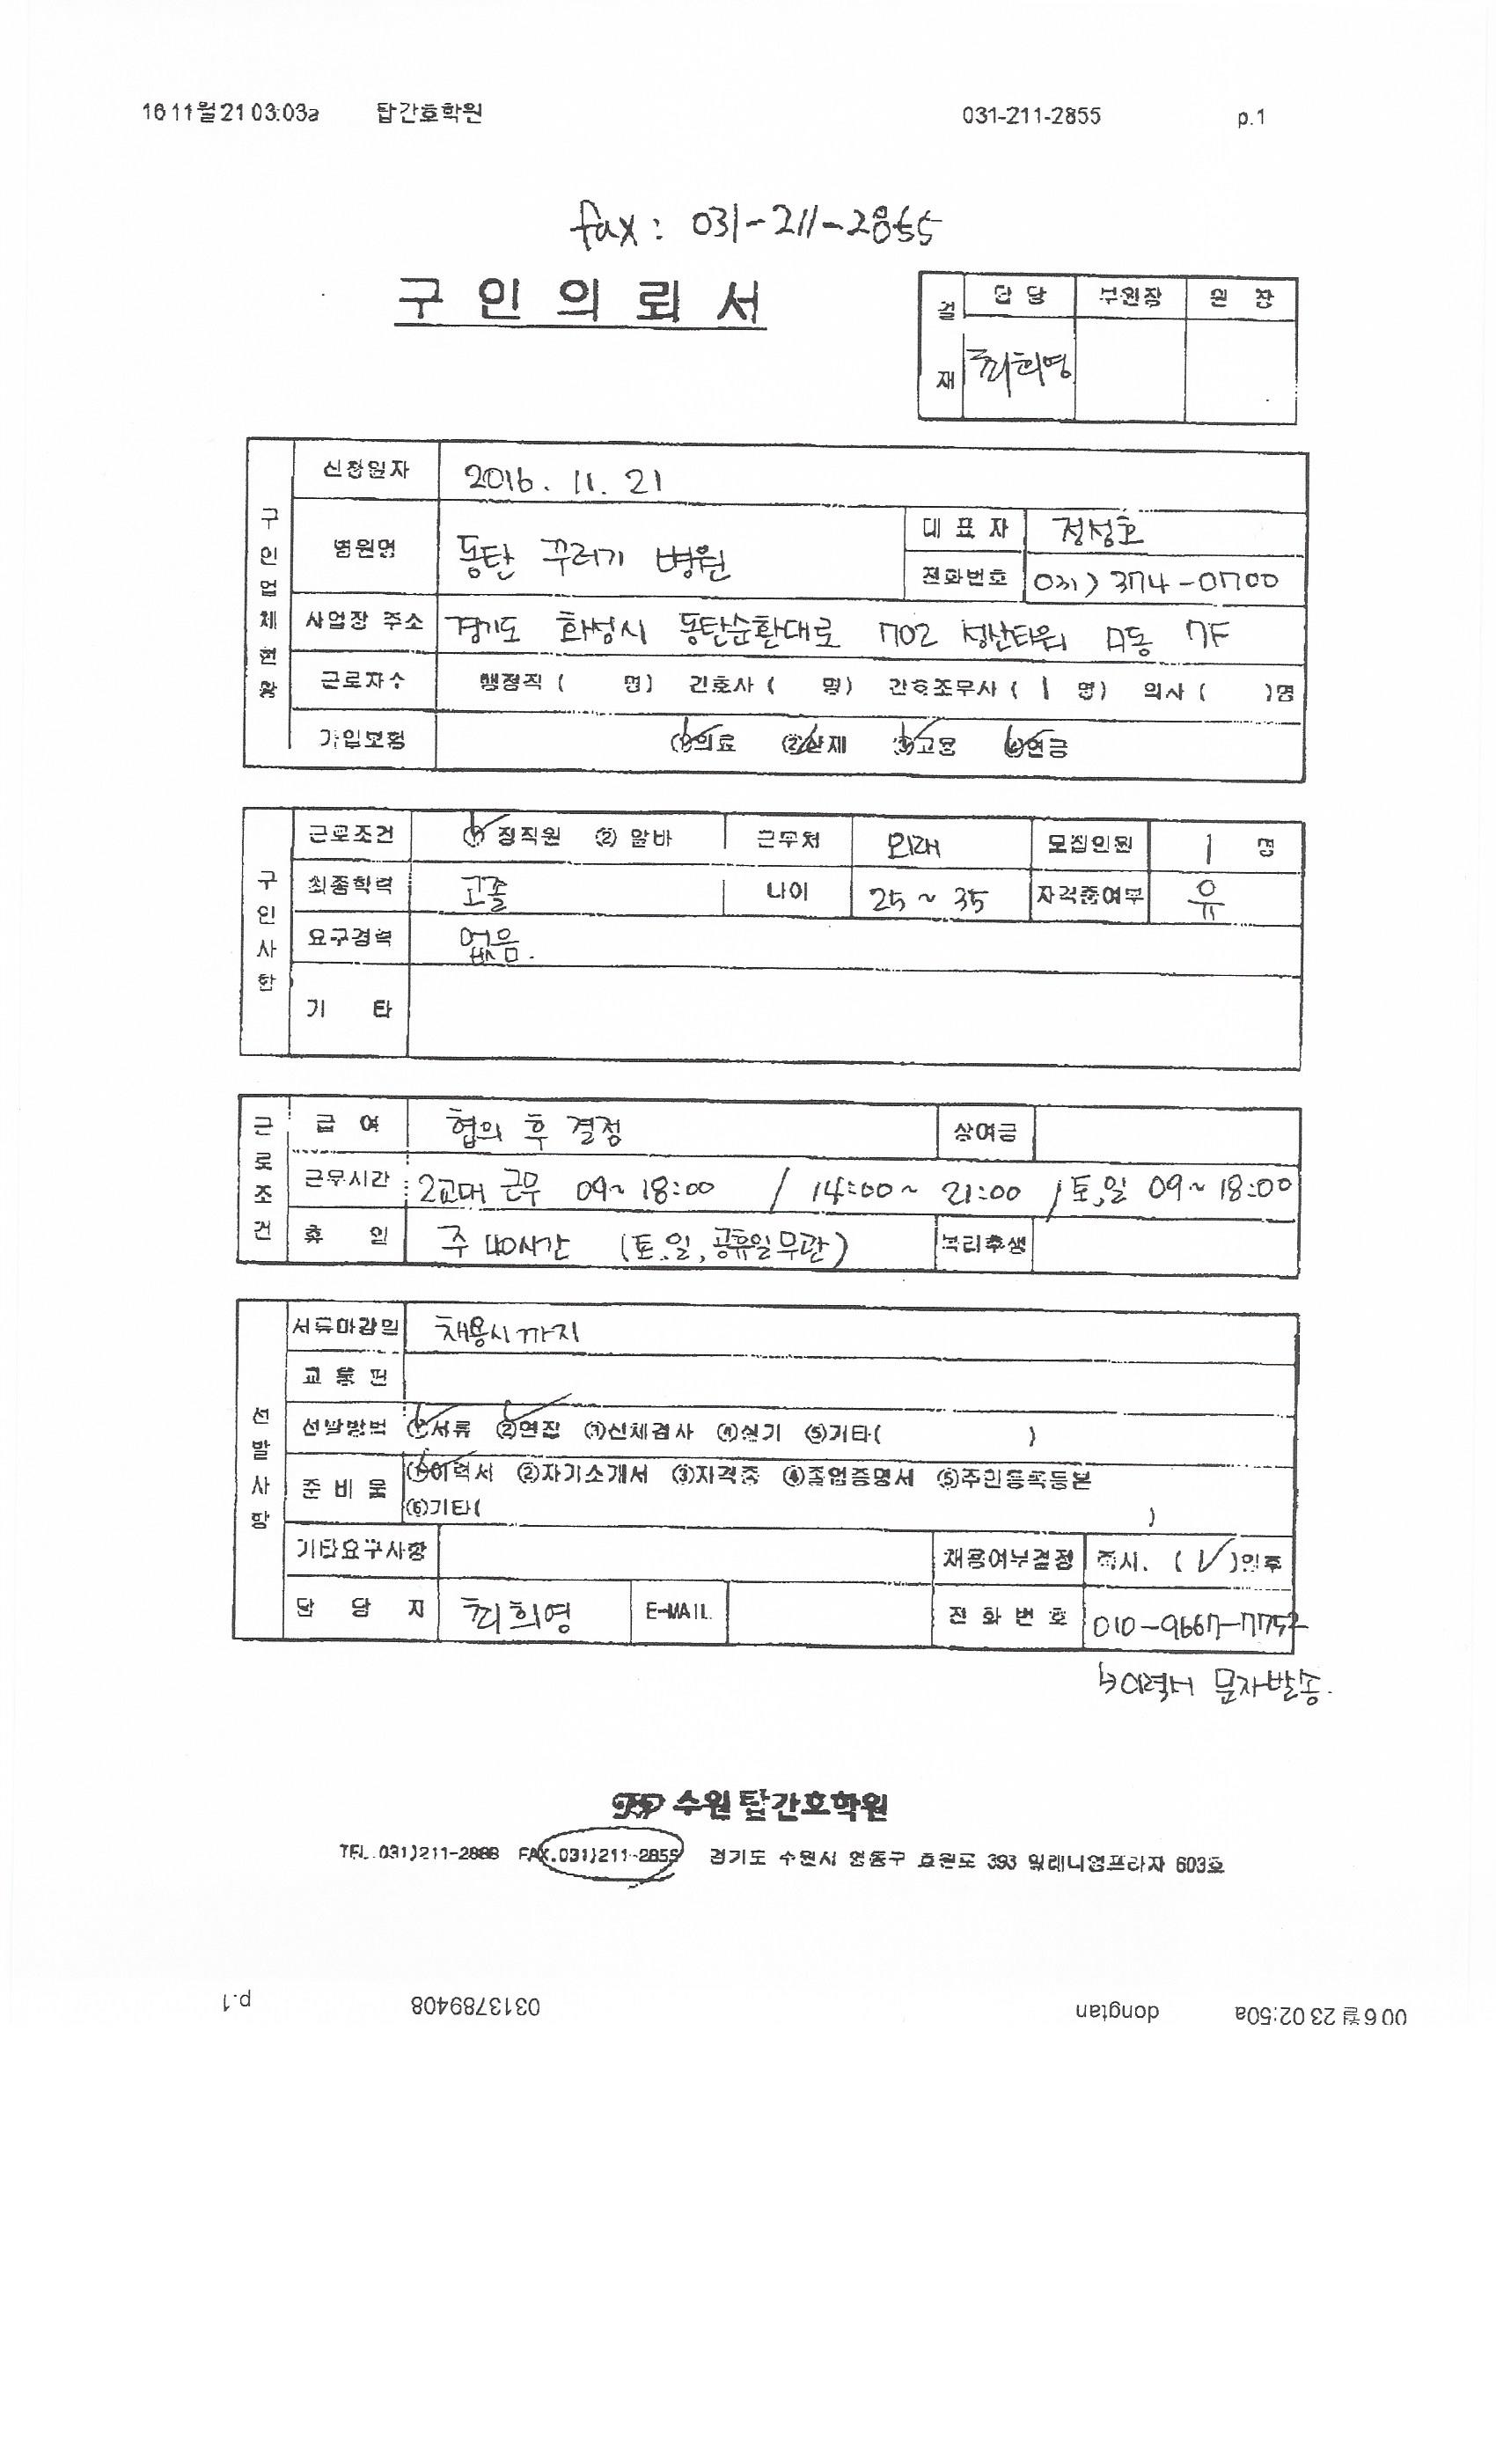 16 11월 21 03:03a 탑간호학원 031-211-2855 p.1
fax : 031-211-2855
구 인 의 뢰 서
결 재 담 당 부원장 원 장
최희영
구인업체현황
신청일자 2016. 11. 21
병원명 동탄 꾸러기 병원 대 표 자 정성호
전화번호 031) 374-0700
사업장 주소 경기도 화성시 동탄순환대로 702 A동 7F
근로자수 행정직 ( 명) 간호사 ( 명) 간호조무사 ( 1 명) 의사 ( )명
가입보험 ①의료 ②산재 ③고용 ④연금
구인사항
근로조건 ① 정직원 ② 알바 근무처 외래 모집인원 1 명
최종학력 고졸 나이 25 ~ 35 자격증여부 유
요구경력 없음.
기 타
근로조건
급 여 협의 후 결정 상여금
근무시간 2교대 근무 09~ 18:00 / 14:00~ 21:00 / 토,일 09~ 18:00
휴 일 주 40시간 (토.일, 공휴일무관) 복리후생
선발사항
서류마감일 채용시 까지
교 통 편
선발방법 ①서류 ②면접 ③신체검사 ④실기 ⑤기타( )
준 비 물 ①이력서 ②자기소개서 ③자격증 ④졸업증명서 ⑤주민등록등본
⑥기타( )
기타요구사항 채용여부결정 즉시. ( V )일후
담 당 자 최희영 E-MAIL. 전 화 번 호 010-9667-7752
↳이력서 문자발송.
TOP 수원 탑간호학원
TEL.031)211-2888 FAX.031)211-2855 경기도 수원시 영통구 효원로 393 밀레니엄프라자 603호
00 6월 23 02:50a dongtan 0313789408 p.1